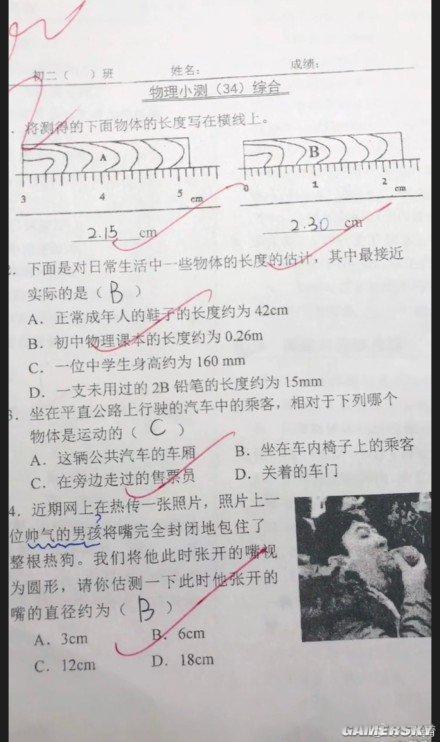 初二（ ）班 姓名： 成绩：
物理小测（34）综合
. 将测得的下面物体的长度写在横线上。
A B
3 4 5 cm 0 1 2 cm
2.15 cm 2.30 cm
2. 下面是对日常生活中一些物体的长度的估计，其中最接近
实际的是（ B ）
A．正常成年人的鞋子的长度约为 42cm
B．初中物理课本的长度约为 0.26m
C．一位中学生身高约为 160 mm
D．一支未用过的 2B 铅笔的长度约为 15mm
3．坐在平直公路上行驶的汽车中的乘客，相对于下列哪个
物体是运动的（ C ）
A．这辆公共汽车的车厢 B．坐在车内椅子上的乘客
C．在旁边走过的售票员 D．关着的车门
4．近期网上在热传一张照片，照片上一
位帅气的男孩将嘴完全封闭地包住了
?
整根热狗。我们将他此时张开的嘴视
为圆形，请你估测一下此时他张开的
嘴的直径约为（ B ）
A．3cm B．6cm
C．12cm D．18cm
GAMERSKY